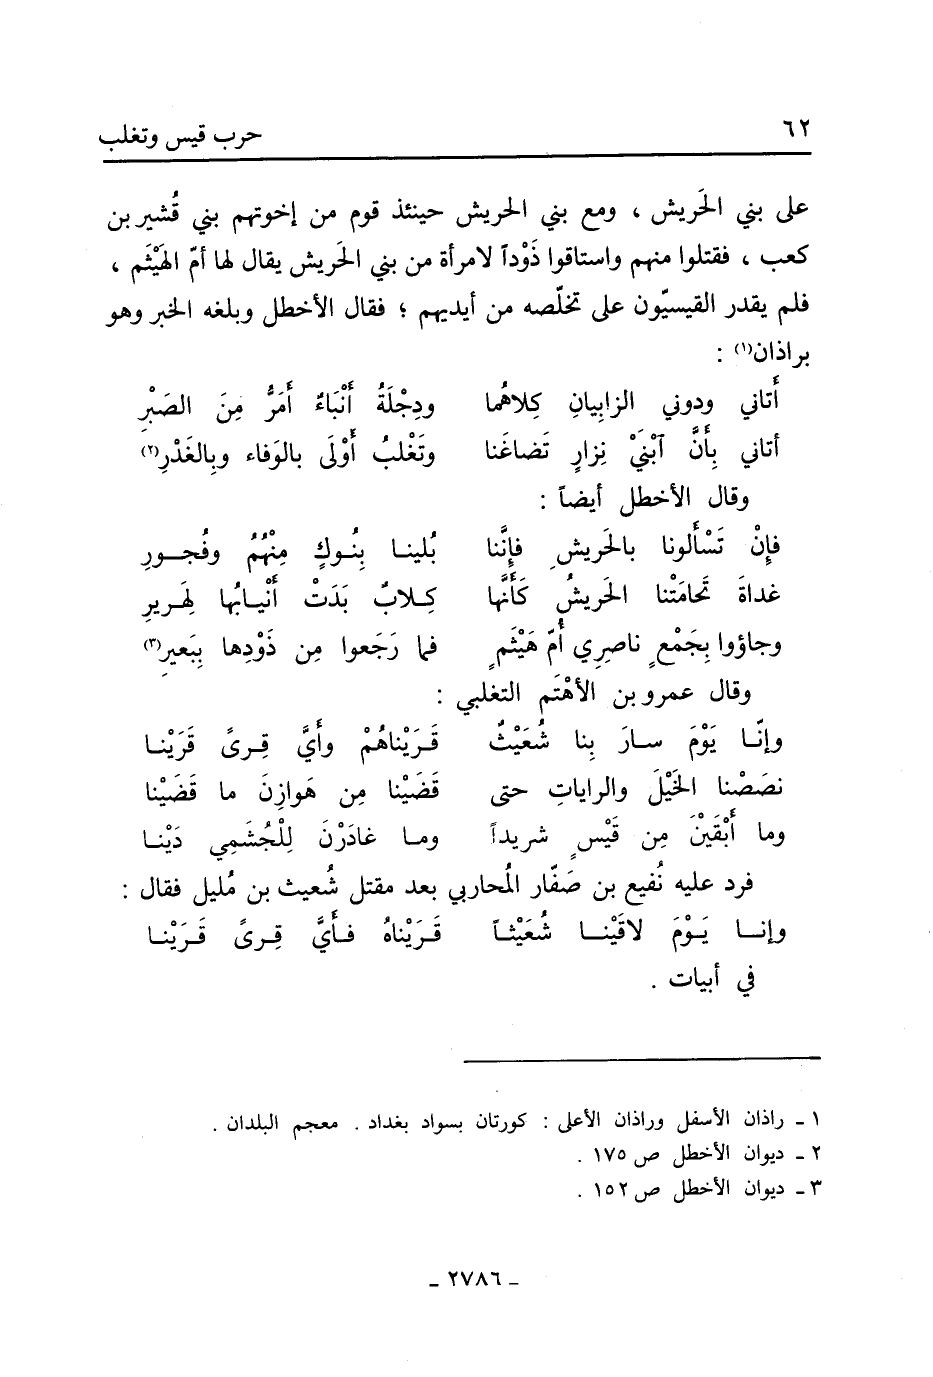 ٦٢ حرب قيس وتغلب
على بني الحَريش ، ومع بني الحريش حينئذ قوم من إخوتهم بني قُشير بن
كعب ، فقتلوا منهم واستاقوا ذَوْداً لامرأة من بني الحَريش يقال لها أمّ الهَيْثَم ،
فلم يقدر القيسيّون على تخلّصه من أيديهم ؛ فقال الأخطل وبلغه الخبر وهو
براذان(١) :
أَتاني ودوني الزابيانِ كِلاهُما ودِجْلَةُ أَنْبَاءُ أَمَرُّ مِنَ الصَبْرِ
أتاني بِأَنَّ آبْنَيْ نِزارٍ تَضاغَنا وتَغْلبُ أَوْلَى بالوَفاء وبِالغَدْرِ(٢)
وقال الأخطل أيضاً :
فإنْ تَسْأَلونا بالحَريشِ فإنَّنا بُلينا بِنُوكٍ مِنْهُمُ وفُجورِ
غداةَ تَحامَتْنا الحَريشُ كَأَنَّها كِلابٌ بَدَتْ أَنْيابُها لهَريرِ
وجاؤوا بِجَمْعٍ ناصِرِي أُمّ هَيْثَمٍ فما رَجَعوا مِن ذَوْدِها بِبَعيرِ(٣)
وقال عمرو بن الأهْتَم التغلبي :
وإنّا يَوْمَ سارَ بِنا شُعَيْثٌ قَرَيْناهُمْ وأَيَّ قِرىً قَرَيْنا
نصَصْنا الخَيْلَ والراياتِ حتى قَضَيْنا مِن هَوازِنَ ما قَضَيْنا
وما أَبْقَيْنَ مِن قَيْسٍ شريداً وما غادَرْنَ لِلْجُشَمِي دَيْنا
فرد عليه نُفيع بن صَفّار المُحاربي بعد مقتل شُعيث بن مُليل فقال :
وإنا يَوْمَ لاقَيْنا شُعَيْثاً قَرَيْناهُ فأَيَّ قِرىً قَرَيْنا
في أبيات .
١ ـ راذان الأسفل وراذان الأعلى : كورتان بسواد بغداد . معجم البلدان .
٢ ـ ديوان الأخطل ص ١٧٥ .
٣ ـ ديوان الأخطل ص ١٥٢ .
ـ ٢٧٨٦ ـ